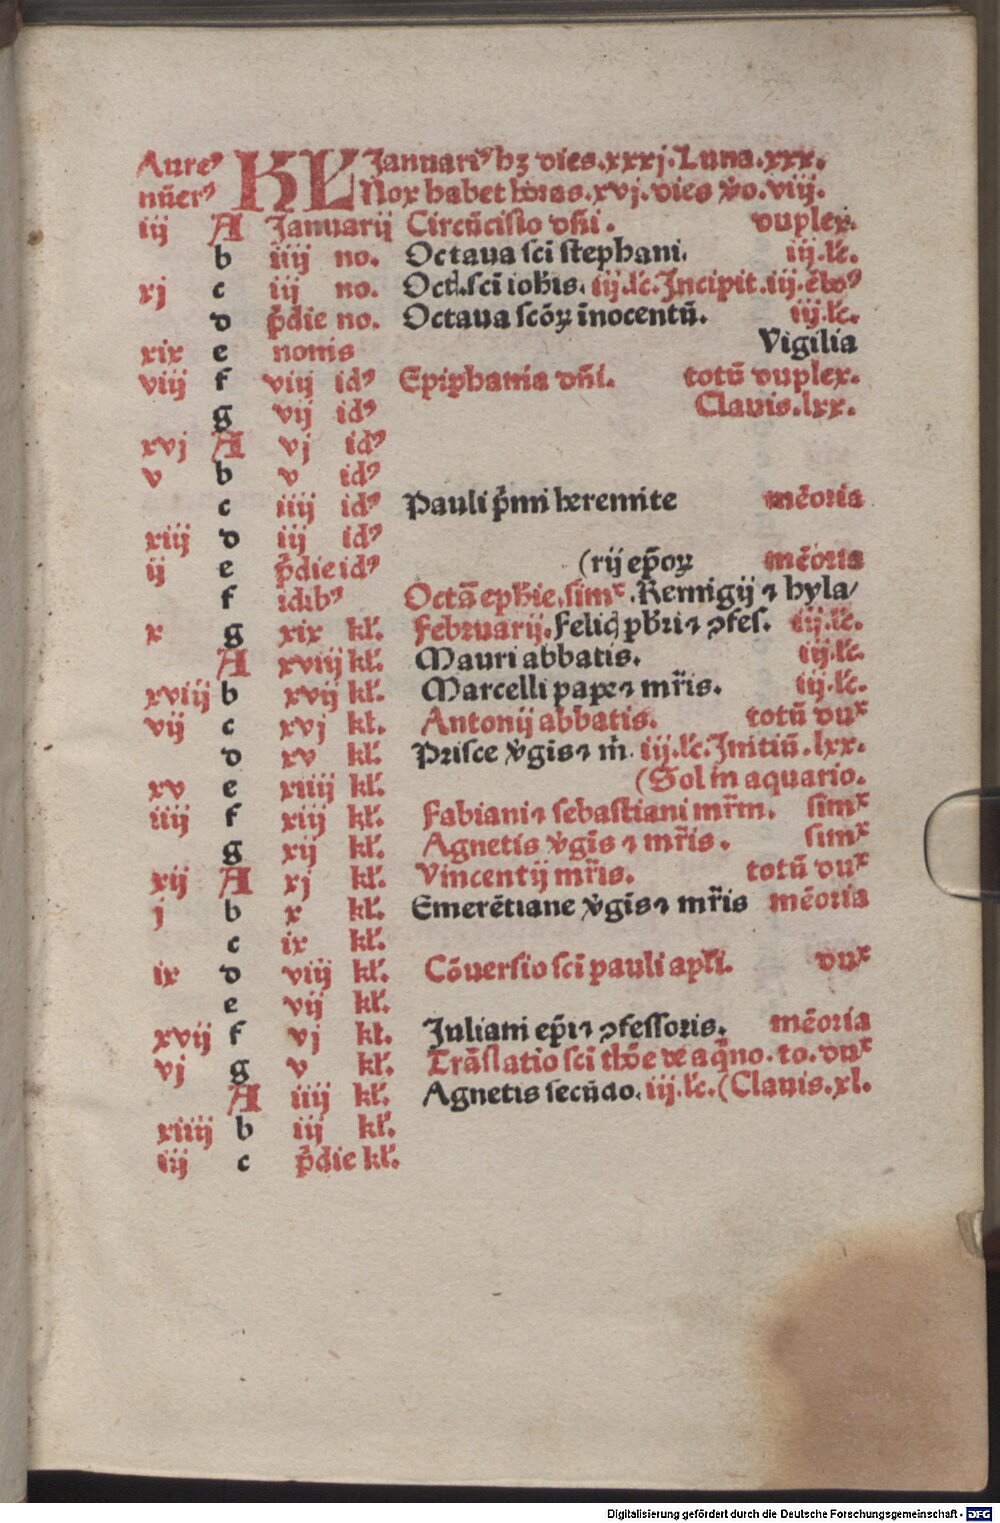 Aureꝰ KL Januariꝰ hꝫ dies.xxxj.Luna.xxx.
nūerꝰ Nox habet horas.xvj.dies v̊o.viij.
iij A Januarij Circūcisio dn̄i. duplex.
b iiij no. Octaua sci̅ stephani. iij.lc̄.
xj c iij no. Oct.sci̅ ioh̄is. iij.lc̄.Incipit.iij.
d p̄die no. Octaua scōꝝ īnocentū. iij.lc̄.
xix e nonis Vigilia
viij f viij idꝰ Epiphania dn̄i. totū duplex.
g vij idꝰ Clauis.lxx.
xvj A vj idꝰ
v b v idꝰ
c iiij idꝰ Pauli p̄mi heremite mēoria
xiij d iij idꝰ
ij e p̄die idꝰ (rij ep̄oꝝ mēoria
f idibꝰ Octā eph̄ie.simˣ.Remigij ⁊ hyla/
x g xix kł. Februarij.Felic̨ p̄bri ⁊ ꝯfes. iij.lc̄.
A xviij kł. Mauri abbatis. iij.lc̄.
xviij b xvij kł. Marcelli pape ⁊ mr̄is. iij.lc̄.
vij c xvj kł. Antonij abbatis. totū duˣ
d xv kł. Prisce v̊gis ⁊ m̄. iij.lc̄.Initiū.lxx.
xv e xiiij kł. (Sol in aquario.
iiij f xiij kł. Fabiani ⁊ sebastiani mr̄m. simˣ
g xij kł. Agnetis v̊gīs ⁊ mr̄is. simˣ
xij A xj kł. Vincentij mr̄is. totū duˣ
j b x kł. Emerētiane v̊gīs ⁊ mr̄is mēoria
c ix kł.
ix d viij kł. Cōuersio sci̅ pauli apłi. duˣ
e vij kł.
xvij f vj kł. Juliani ep̄i ⁊ ꝯfessoris. mēoria
vj g v kł. Trāslatio sci̅ thōe de aq̄no.to.duˣ
A iiij kł. Agnetis secūdo.iij.lc̄.(Clauis.xl.
xiiij b iij kł.
iij c p̄die kł.
Digitalisierung gefördert durch die Deutsche Forschungsgemeinschaft - DFG